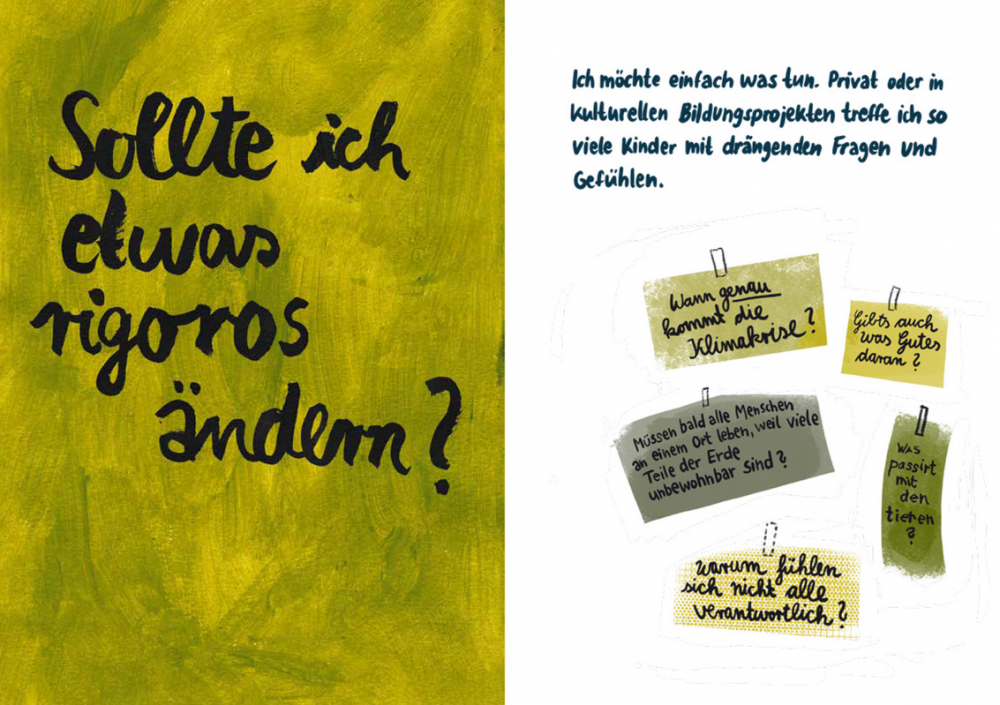 Sollte ich
etwas
rigoros
ändern?
Ich möchte einfach was tun. Privat oder in
kulturellen Bildungsprojekten treffe ich so
viele Kinder mit drängenden Fragen und
Gefühlen.
Wann genau
kommt die
Klimakrise?
Gibts auch
was Gutes
daran?
Müssen bald alle Menschen
an einem Ort leben, weil viele
Teile der Erde
unbewohnbar sind?
Was
passirt
mit
den
tieren
?
warum fühlen
sich nicht alle
verantwortlich?